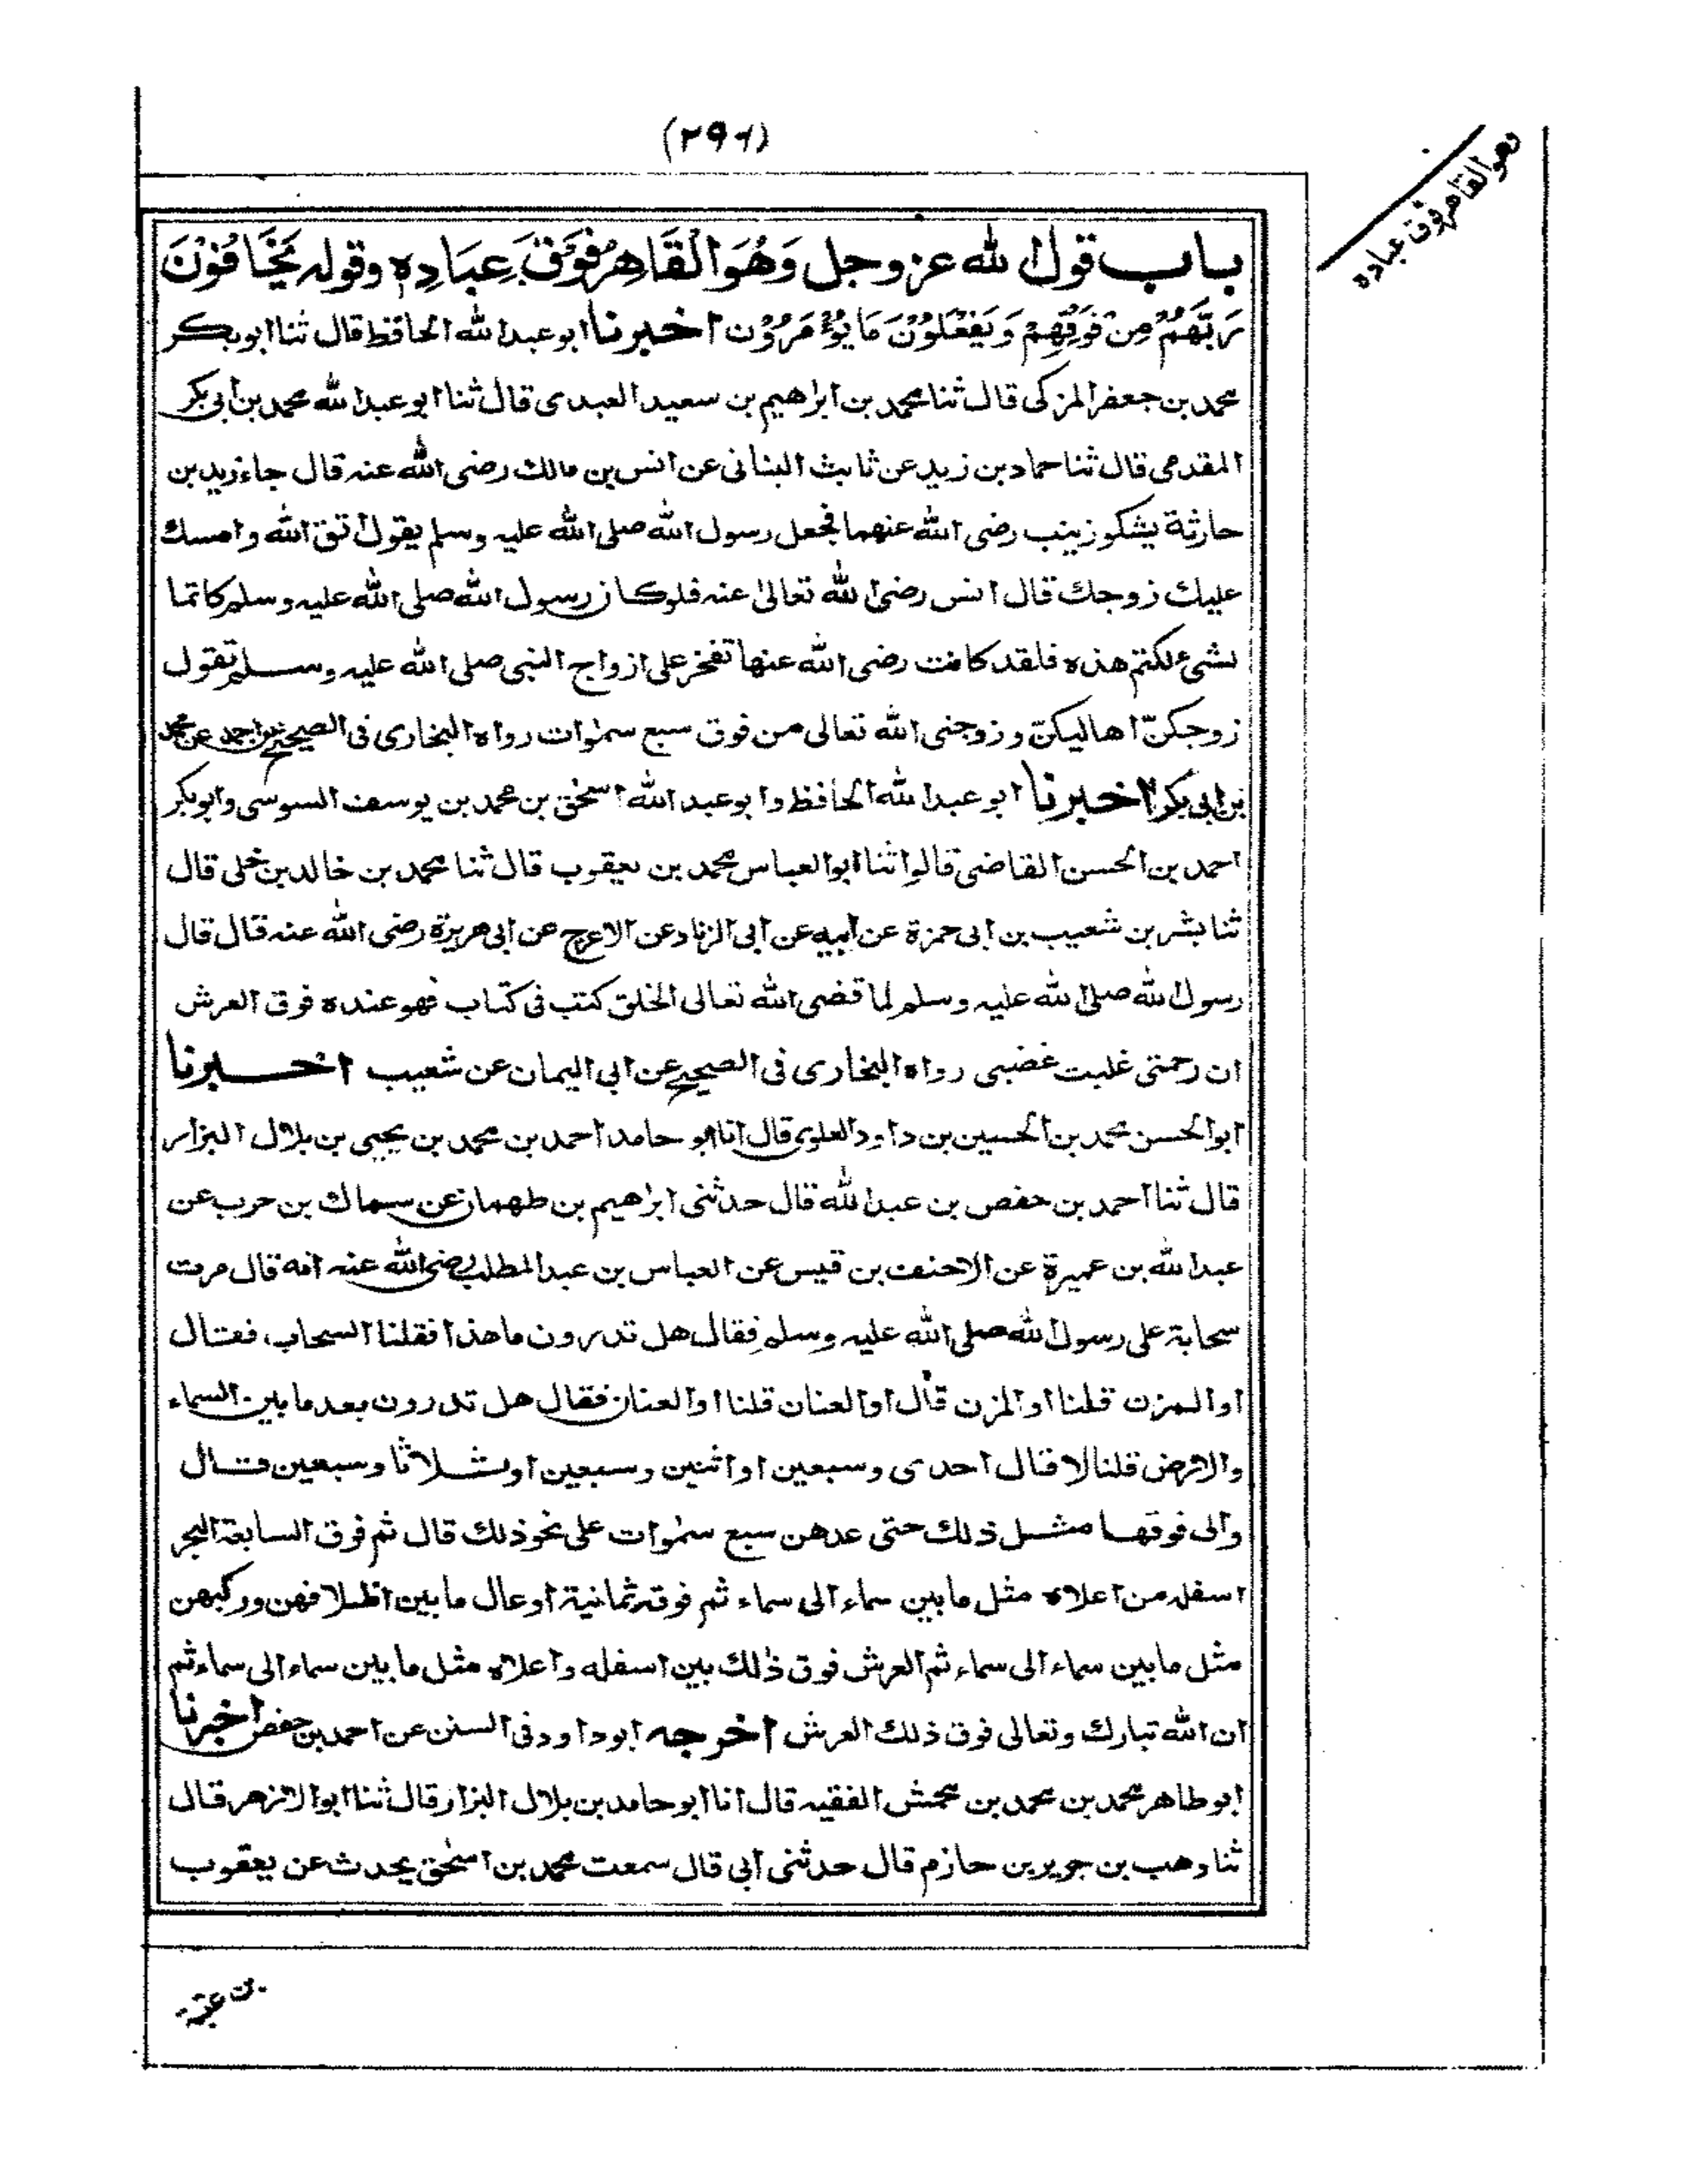 (۲۹۶)
وهو القاهر فوق عباده
باب قول الله عز وجل وَهُوَ الْقَاهِرُ فَوْقَ عِبَادِهِ وقوله يَخَافُوْنَ
رَبَّهُمْ مِنْ فَوْقِهِمْ وَيَفْعَلُوْنَ مَا يُؤْمَرُوْن اخبرنا ابو عبد الله الحافظ قال ثنا ابو بكر
محمد بن جعفر المزكى قال ثنا محمد بن ابراهيم بن سعيد العبدى قال ثنا ابو عبد الله محمد بن ابى بكر
المقدمى قال ثنا حماد بن زيد عن ثابت البنانى عن انس بن مالك رضى الله عنه قال جاء زيد بن
حارثة يشكو زينب رضى الله عنهما فجعل رسول الله صلى الله عليه وسلم يقول اتق الله وامسك
عليك زوجك قال انس رضى الله تعالىٰ عنه فلو كان رسول الله صلى الله عليه وسلم كاتما
بشئ لكتم هذه فلقد كانت رضى الله عنها تفخر على ازواج النبى صلى الله عليه وسلم تقول
زوجكنّ اهاليكنّ وزوجنى الله تعالى من فوق سبع سمٰوات رواه البخارى فى الصحيح عن احمد عن محمد
بن ابى بكر اخبرنا ابو عبد الله الحافظ وابو عبد الله اسحٰق بن محمد بن يوسف السوسى وابو بكر
احمد بن الحسن القاضى قالوا ثنا ابو العباس محمد بن يعقوب قال ثنا محمد بن خالد بن خلى قال
ثنا بشر بن شعيب بن ابى حمزة عن ابيه عن ابى الزناد عن الاعرج عن ابى هريرة رضى الله عنه قال قال
رسول الله صلى الله عليه وسلم لما قضى الله تعالى الخلق كتب فى كتاب فهو عنده فوق العرش
ان رحمتى غلبت غضبى رواه البخارى فى الصحيح عن ابى اليمان عن شعيب اخبرنا
ابو الحسن محمد بن الحسين بن داود العلوى قال انا ابو حامد احمد بن محمد بن يحيى بن بلال البزار
قال ثنا احمد بن حفص بن عبد الله قال حدثنى ابراهيم بن طهمان عن سماك بن حرب عن
عبد الله بن عميرة عن الاحنف بن قيس عن العباس بن عبد المطلب رضى الله عنه انه قال مرت
سحابة على رسول الله صلى الله عليه وسلم فقال هل تدرون ما هذا فقلنا السحاب فقال
او المزن قلنا او المزن قال او العنان قلنا او العنان فقال هل تدرون بعد ما بين السماء
والارض قلنا لا قال احدى وسبعين او اثنين وسبعين او ثلاثا وسبعين قال
والى فوقها مثل ذلك حتى عدهن سبع سمٰوات على نحو ذلك قال ثم فوق السابعة البحر
اسفله من اعلاه مثل ما بين سماء الى سماء ثم فوقه ثمانية اوعال ما بين اظلافهن وركبهن
مثل ما بين سماء الى سماء ثم العرش فوق ذٰلك بين اسفله واعلاه مثل ما بين سماء الى سماء ثم
ان الله تبارك وتعالى فوق ذلك العرش اخرجه ابو داود فى السنن عن احمد بن حفص اخبرنا
ابو طاهر محمد بن محمد بن محمش الفقيه قال انا ابو حامد بن بلال البزار قال ثنا ابو الازهر قال
ثنا وهب بن جرير بن حازم قال حدثنى ابى قال سمعت محمد بن اسحٰق يحدث عن يعقوب